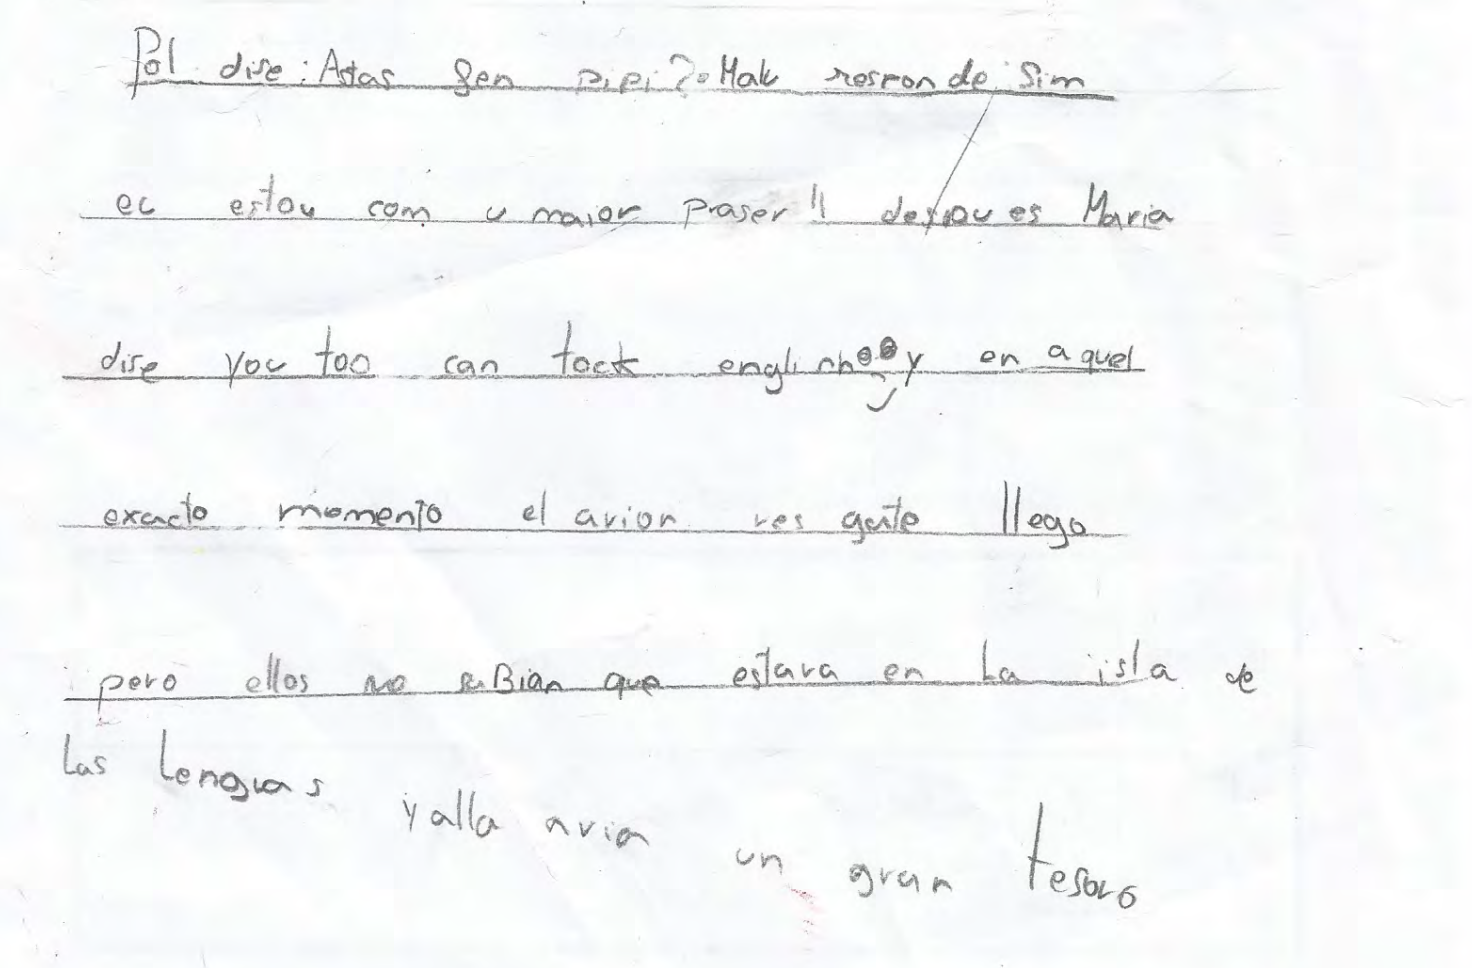 Pol dise: Astas fen pipi? Mak responde: Sim
ec estou com u maior praser!! despues Maria
dise you too can tock english y en aquel
exacto momento el avion res gate llego
pero ellos no saBian que estava en La isla de
las lenguas y alla avia un gran tesoro